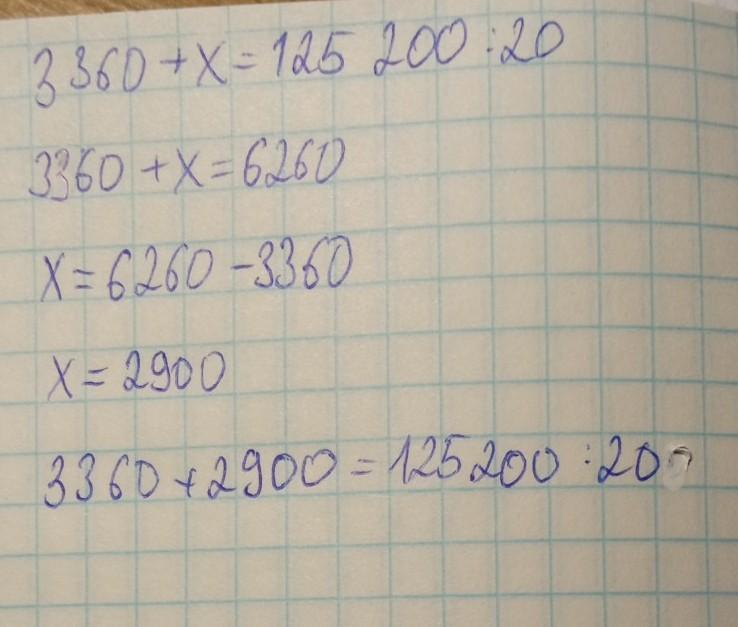 3360+x=125 200:20
3360+x=6260
x=6260-3360
x=2900
3360+2900=125200:20